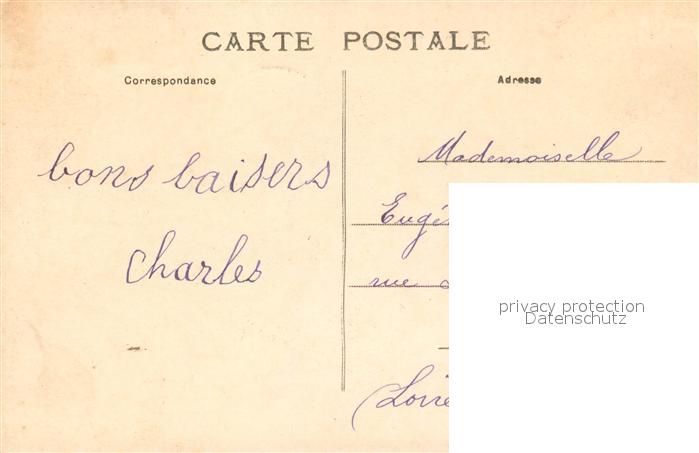 CARTE POSTALE
Correspondance
Adresse
bons baisers
Charles
Mademoiselle
Eugé
rue
Loire
privacy protection
Datenschutz